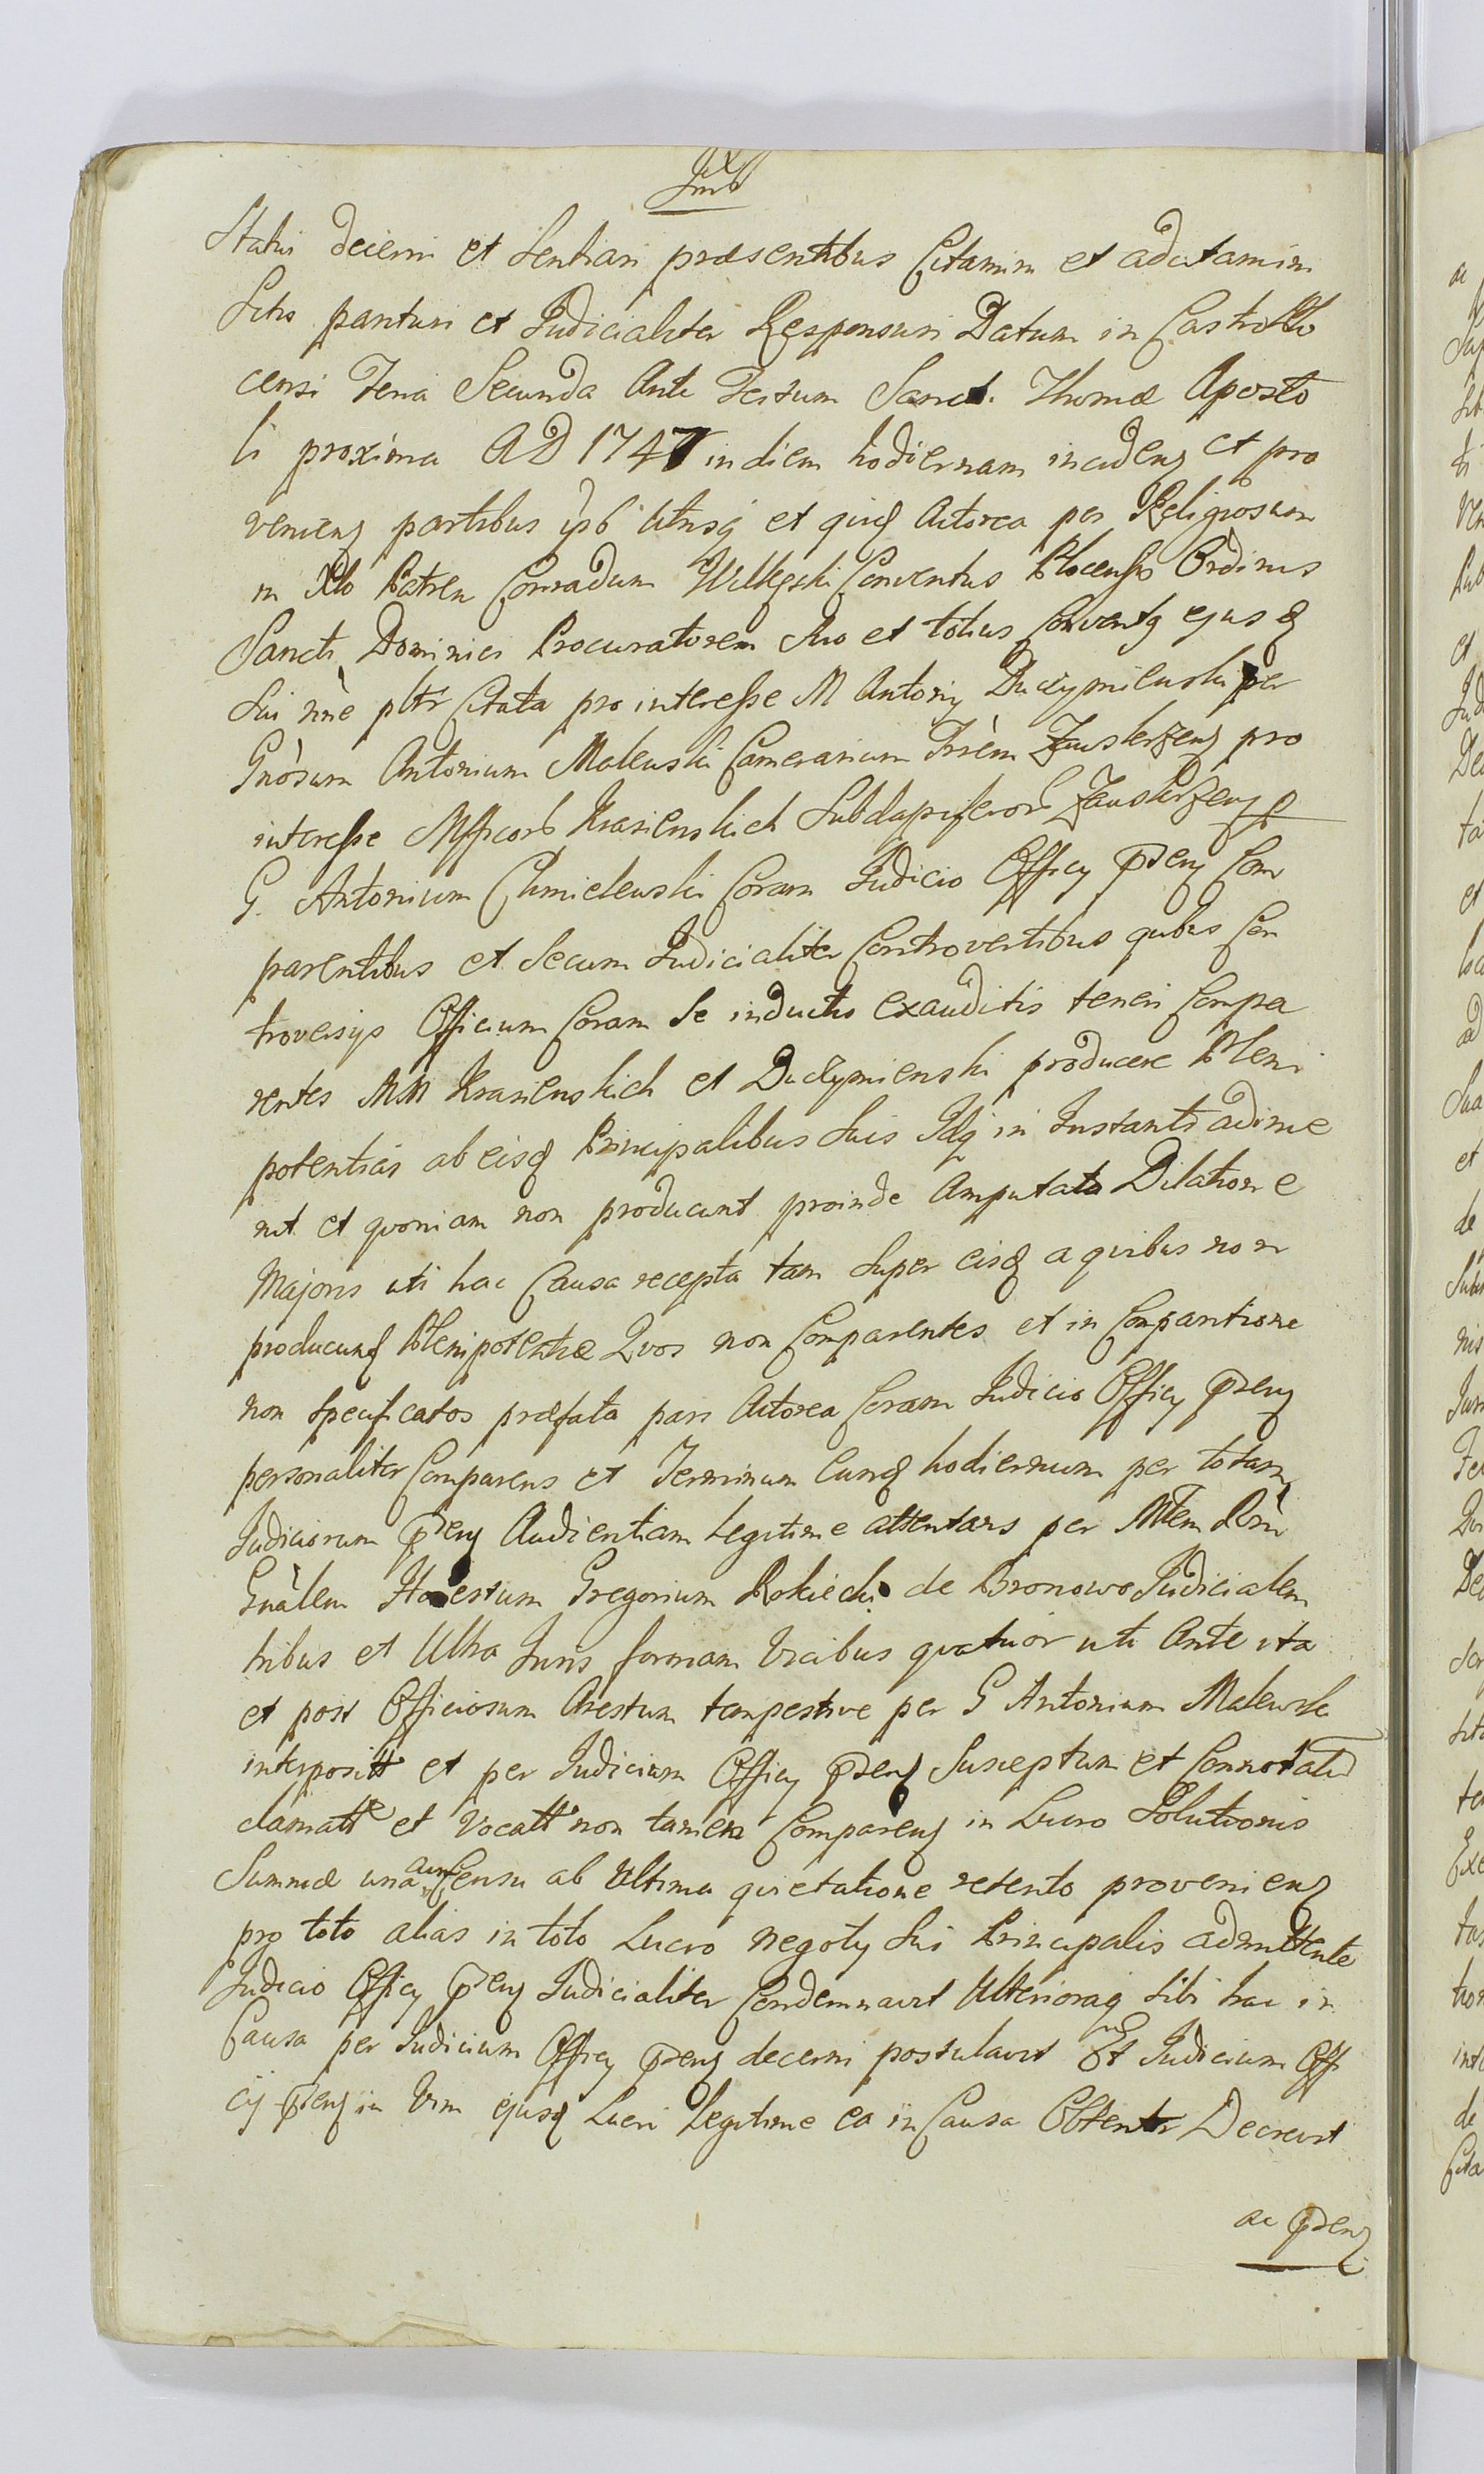 Statui decerni et Sentiari præsentibus Citamini et adcitamini
Litis parituri et Judicialiter Responsuri Datum in Castro Plo
censi Feria Secunda Ante Festum Sancti Thomæ Aposto
li proxima AD 1747 in diem hodiernam incideng et pro
venieng partibus ipsb utrisq et quid Actorea per Religiosum
in Xto Patrem Conradum Conventus Plocensis Ordinis
Sancti Dominici Procuratorem Suo et totius Conventg ejusq
Sui nñe pltr Citata pro interesse M Antonij per
Gnòsum Antonium Malewski Camerarium Trrèm Zauskrzeng pro
interesse Mfficorb Krasienskich Subdapiferorb Zauskrzeng p
G. Antonium Chmielewski Coram Judicio Officy Pseng Com
parentibus et Secum Judicialiter Controvertibus qubus Con
troversijs Officium Coram Se inductis exauditis teneri Compa
rentes MM Krasienskich et producere Pleni
potentias ab eisq Principalibus Suis Idq in Instanti adinve
nit et quoniam non producunt proinde Amputata Dilatione
Majoris uti hac Causa recepta tam Super eisq a quibus non
producunt Plenipotentiæ Quos non Comparentes et in Comparitione
non Specificatos præfata pars Actorea Coram Judicio Officy Pseng
personaliter Comparens et Terminum Eund hodiernum per totam
Judiciorum Pseng Audientiam Legitime attentans per Mtem Rm
Gnàlem Honestum Gregorium Rokicki de Bronowo Judicialem
tribus et Ultra Juris formam Vicibus quatuor uti Ante ita
et post Officiosum Arestum tempestive per G Antonium Malewski
interposit et per Judicium Officy Pseng Susceptum et Connotatu
clamatt et Vocatt non tamen Compareng in Lucro Solutionis
Summæ una cum Censu ab Ultima quietatione retento provenieng
pro toto alias in toto Lucro negotij Sui Principalis admittente
Judicio Officy Pseng Judicialiter Condemnavit Ulterioraq Sibi hac in
Causa per Judicium Officy Pseng decerni postulavit Et Judicium Offi
cij Pseng in Vim ejusq Lucri Legitime ea in Causa Obtenti Decrevit
ac Pseng